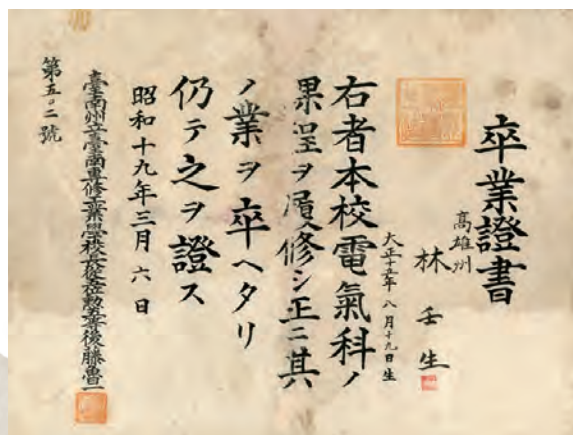 卒業證書
高雄州
林壬生
大正十五年八月十九日生
右者本校電氣科ノ
果呈ヲ履修シ正ニ其
ノ業ヲ卒ヘタリ
仍テ之ヲ證ス
昭和十九年三月六日
臺南州立臺南專修工業學校長從七位勳六等後藤魯一
第五〇二號